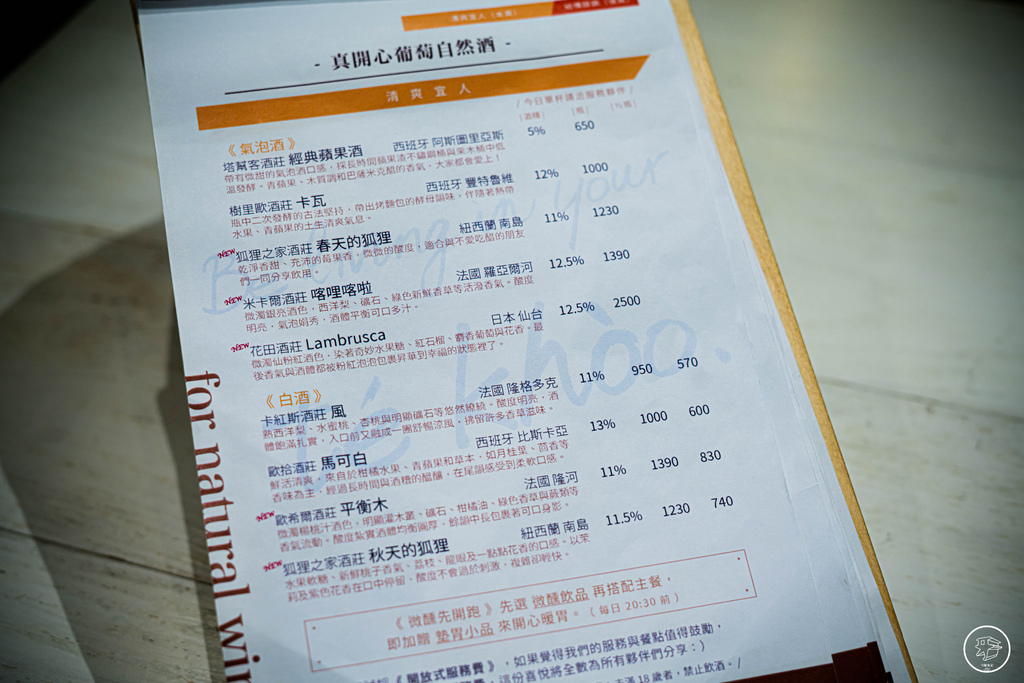 清爽宜人
- 真開心葡萄自然酒 -
清爽宜人
/ 今日單杯請洽服務夥伴 /
《 氣泡酒 》
|酒精| |瓶| |½瓶|
塔幫客酒莊 經典蘋果酒 西班牙 阿斯圖里亞斯 5% 650
帶有微甜的氣泡酒口感，採長時間蘋果渣不鏽鋼桶與栗木桶中低
溫發酵。青蘋果、木質調和巴薩米克醋的香氣，大家都會愛上！
樹里歐酒莊 卡瓦 西班牙 豐特魯維 12% 1000
瓶中二次發酵的古法堅持，帶出烤麵包的酵母韻味，伴隨著熱帶
水果、青蘋果的土生清爽氣息。
NEW 狐狸之家酒莊 春天的狐狸 紐西蘭 南島 11% 1230
乾淨香甜、充沛的莓果香，微微的酸度，適合與不愛吃醋的朋友
們一同分享飲用。
NEW 米卡爾酒莊 喀哩喀啦 法國 羅亞爾河 12.5% 1390
微濁銀亮酒色，西洋梨、礦石、綠色新鮮香草等活潑香氣。酸度
明亮，氣泡娟秀，酒體平衡可口多汁。
NEW 花田酒莊 Lambrusca 日本 仙台 12.5% 2500
微濁仙粉紅酒色，染著奇妙水果糖、紅石榴、麝香葡萄與花香。最
後香氣與酒體都被粉紅泡泡包裹昇華到幸福的狀態裡了。
《 白酒 》
卡紅斯酒莊 風 法國 隆格多克 11% 950 570
熟西洋梨、水蜜桃、杏桃與明顯礦石等悠然繚繞。酸度明亮，酒
體飽滿扎實，入口前又融成一團舒暢涼風，拂留許多香草滋味。
歐拾酒莊 馬可白 西班牙 比斯卡亞 13% 1000 600
鮮活清爽，來自於柑橘水果、青蘋果和草本，如月桂葉、茴香等
香味為主，經過長時間與酒糟的醞釀，在尾韻感受到柔軟口感。
NEW 歐希爾酒莊 平衡木 法國 隆河 11% 1390 830
微濁楊桃汁酒色，明顯灌木叢、礦石、柑橘油、綠色香草與蕨類等
香氣流動。酸度紮實酒體均衡圓厚，餘韻中長包裹著可口身影。
NEW 狐狸之家酒莊 秋天的狐狸 紐西蘭 南島 11.5% 1230 740
水果軟糖、新鮮桃子香氣、荔枝、龍眼及一點點花香的口感。以茉
莉及紫色花香在口中停留，酸度不會過於刺激，複雜卻輕快。
《 微醺先開跑 》先選 微醺飲品 再搭配主餐，
即加贈 墊胃小品 來開心暖胃。（ 每日 20:30 前 ）
《 開放式服務費 》，如果覺得我們的服務與餐點值得鼓勵，
這份喜悅將全數為所有夥伴們分享：）
未滿 18 歲者，禁止飲酒。/
for natural win
your
khòo.